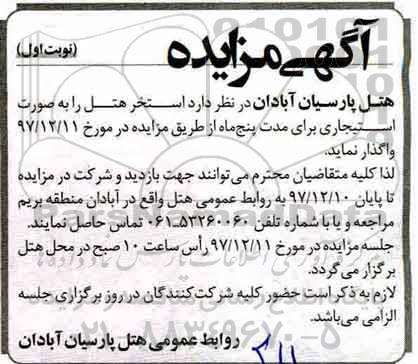 آگهی مزایده
(نوبت اول)
هتل پارسیان آبادان در نظر دارد استخر هتل را به صورت
استیجاری برای مدت پنج‌ماه از طریق مزایده در مورخ ۹۷/۱۲/۱۱
واگذار نماید.
لذا کلیه متقاضیان محترم می‌توانند جهت بازدید و شرکت در مزایده
تا پایان ۹۷/۱۲/۱۰ به روابط عمومی هتل واقع در آبادان منطقه بریم
مراجعه و یا با شماره تلفن ۵۳۲۶۰۰۶۰-۰۶۱ تماس حاصل نمایند.
جلسه مزایده در مورخ ۹۷/۱۲/۱۱ رأس ساعت ۱۰ صبح در محل هتل
برگزار می‌گردد.
لازم به ذکر است حضور کلیه شرکت‌کنندگان در روز برگزاری جلسه
الزامی می‌باشد.
روابط عمومی هتل پارسیان آبادان
۰۲۱-۸۸۳۴۹۶۷۰-۵